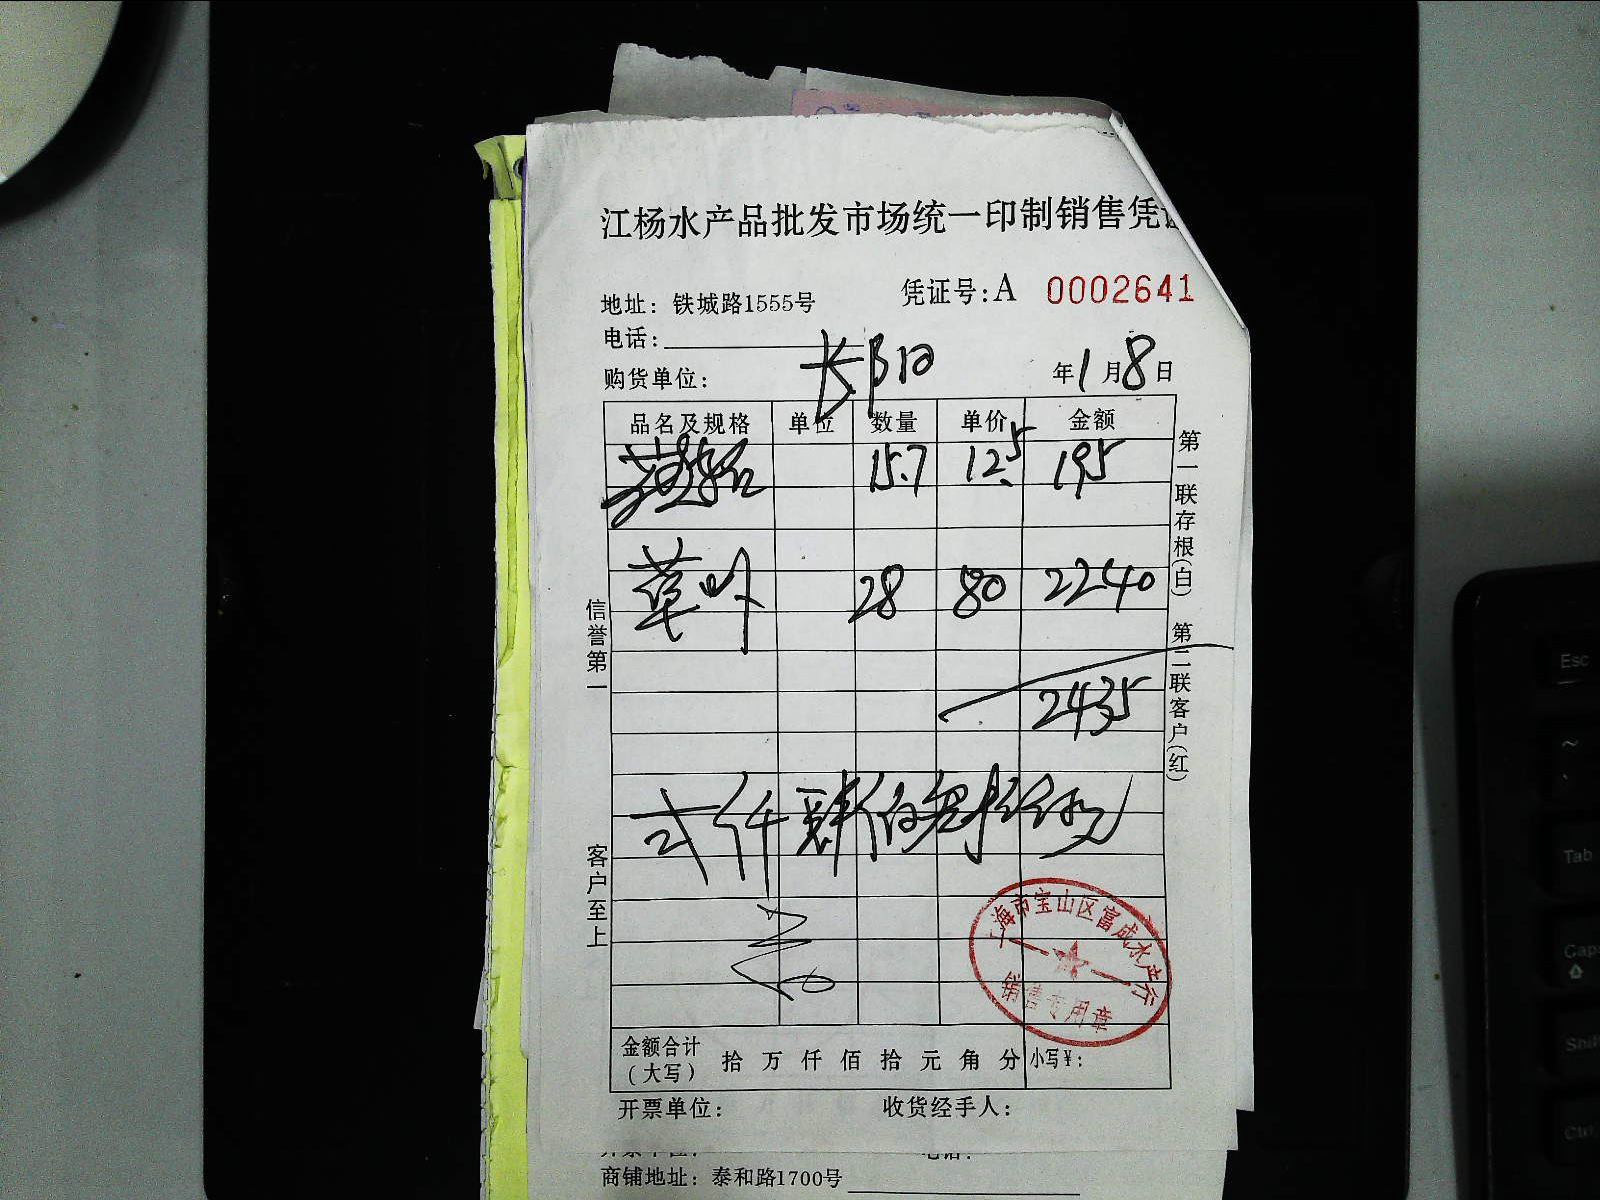 江杨水产品批发市场统一印制销售凭证
凭证号:A 0002641
地址: 铁城路1555号
电话:
购货单位:
年1月8日
品名及规格 单位 数量 单价 金额
15.7 12.5 195
草 28 80 2240
2435
弍仟肆佰叁拾伍元
信誉第一
客户至上
第一联存根(白) 第二联客户(红)
上海市宝山区富成水产行
销售专用章
金额合计(大写) 拾 万 仟 佰 拾 元 角 分 小写¥:
开票单位: 收货经手人:
商铺地址: 泰和路1700号